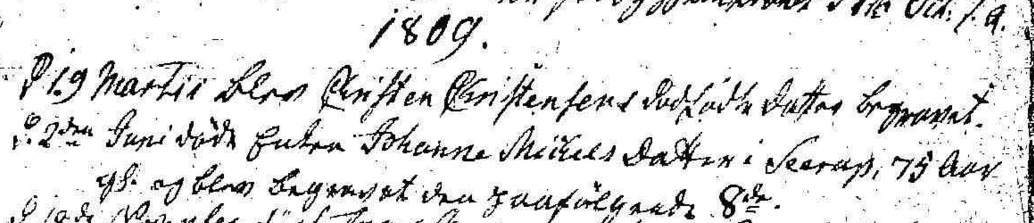 Oct. s. a.
1809.
D 19 Martii blev Christen Christensens dødfødte Datter begravet.
D. 2den Juni døde Enken Johanne Mickels Datter i Seerup, 75 Aar
gl. og blev begravet den paafølgende 8de.